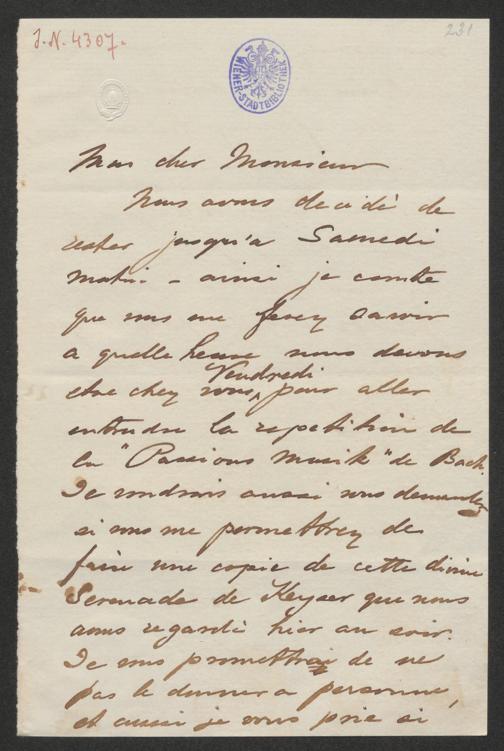 J.N. 4307.
231
WIENER-STADTBIBLIOTHEK
Mon cher Monsieur
Nous avons decidé de
rester jusqu'a Samedi
matin - ainsi je compte
que vous me ferez savoir
a quelle heure nous devons
etre chez vous, Vendredi pour aller
entendre la repetition de
la "Passions Musik" de Bach.
Je voudrais aussi vous demander
si vous me permettrez de
faire une copie de cette divine
Serenade de Keyser que nous
avons regardé hier au soir.
Je vous promettrai de ne
pas le donner a personne,
et aussi je vous prie si